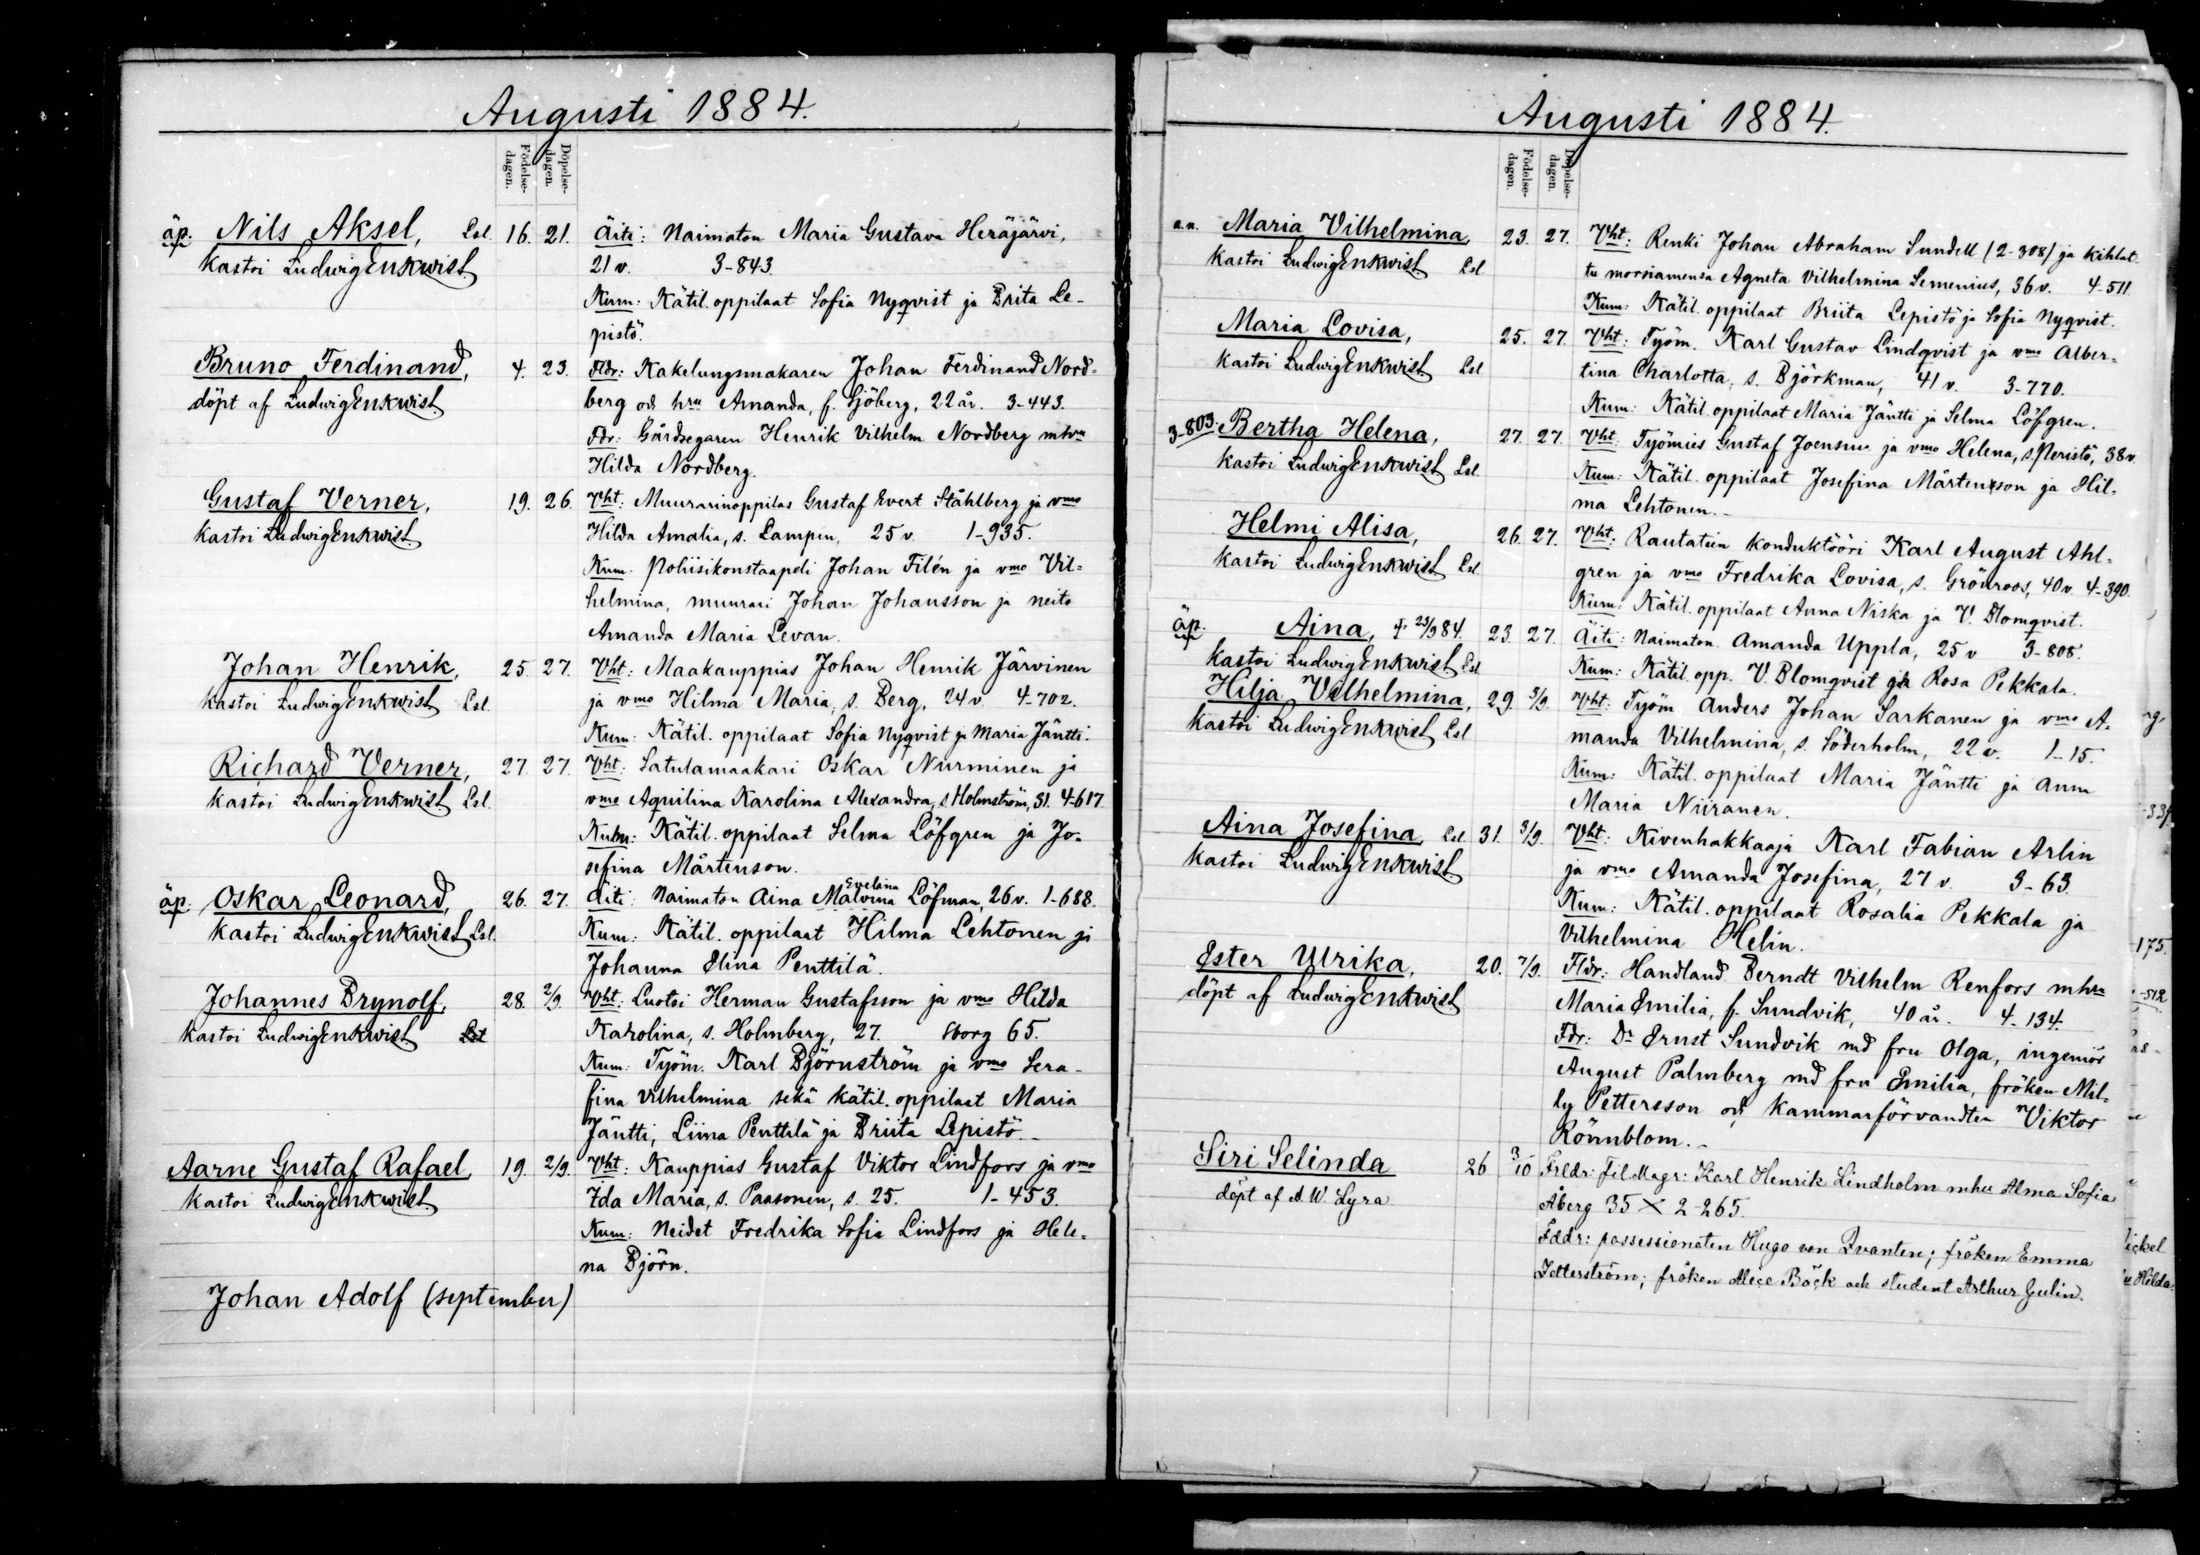 Augusti 1884.
Födelse-dagen. Döpelse-dagen.
äp. Nils Aksel, Lsl. 16. 21. Äiti: Naimaton Maria Gustava Heräjärvi,
kastoi Ludwig Enkwist. 21 v. 3-843.
Kum: Kätil. oppilaat Sofia Nyqvist ja Brita Le-
pistö.
Bruno Ferdinand, 4. 23. Fldr: Kakelungsmakaren Johan Ferdinand Nord-
döpt af Ludwig Enkwist. berg och hru Amanda, f. Sjöberg, 22 år. 3-443.
Fdr: Gårdsegaren Henrik Vilhelm Nordberg mhru
Hilda Nordberg.
Gustaf Verner, 19. 26. Vht: Muurarinoppilas Gustaf Evert Ståhlberg ja vmo
kastoi Ludwig Enkwist. Hilda Amalia, s. Lampen, 25 v. 1-935.
Kum. Poliisikonstaapeli Johan Filén ja vmo Vil-
helmina, muurari Johan Johansson ja neito
Amanda Maria Levan.
Johan Henrik, 25. 27. Vht: Maakauppias Johan Henrik Järvinen
kastoi Ludwig Enkwist Lsl. ja vmo Hilma Maria, s. Berg, 24 v 4-702.
Kum: Kätil. oppilaat Sofia Nyqvist ja Maria Jäntti.
Richard Verner, 27. 27. Vht: Satulamaakari Oskar Nurminen ja
kastoi Ludwig Enkwist Lsl. vmo Aqvilina Karolina Alexandra, s. Holmström, 31. 4-617
Kum: Kätil. oppilaat Selma Löfgren ja Jo-
sefina Mårtenson.
äp. Oskar Leonard, 26. 27. Äiti: Naimaton Aina Malvina Evelina Löfman, 26 v. 1-688.
kastoi Ludwig Enkwist Lsl. Kum: Kätil. oppilaat Hilma Lehtonen ja
Johanna Elina Penttilä.
Johannes Brynolf, 28. 2/9. Vht: Luotsi Herman Gustafsson ja vmo Hilda
kastoi Ludwig Enkwist Lsl Karolina, s. Holmberg, 27. Sborg 65.
Kum: Työm. Karl Björnström ja vmo Sera-
fina Vilhelmina sekä kätil. oppilaat Maria
Jäntti, Liina Penttilä ja Briita Lepistö.-
Aarne Gustaf Rafael, 19. 2/9. Vht: Kauppias Gustaf Viktor Lindfors ja vmo
kastoi Ludwig Enkwist Ida Maria, s. Paasonen, s. 25. 1-453.
Kum: Neidet Fredrika Sofia Lindfors ja Hele-
na Björn.
Johan Adolf (september)
Augusti 1884.
Födelse-dagen. Döpelse-dagen.
a.n. Maria Vilhelmina, 23. 27. Vht: Renki Johan Abraham Sundell (2-308) ja kihlat-
kastoi Ludwig Enkwist Lsl tu morsiamensa Agneta Vilhelmina Semenius, 36 v. 4-511.
Kum: Kätil. oppilaat Briita Lepistö ja Sofia Nyqvist.
Maria Lovisa, 25. 27. Vht: Työm. Karl Gustav Lindqvist ja vmo Alber-
kastoi Ludwig Enkwist. Lsl tina Charlotta, s. Björkman, 41 v. 3-770.
Kum: Kätil. oppilaat Maria Jäntti ja Selma Löfgren.
3-803. Bertha Helena, 27. 27. Vht. Työmies Gustaf Joensuu ja vmo Helena, s. Peristö, 38 v.
kastoi Ludwig Enkwist Lsl. Kum: Kätil. oppilaat Josefina Mårtensson ja Hil-
ma Lehtonen.-
Helmi Alisa, 26. 27. Vht. Rautatien konduktööri Karl August Ahl-
kastoi Ludwig Enkwist Lsl gren ja vmo Fredrika Lovisa, s. Grönroos, 40 v. 4-390.
Kum: Kätil. oppilaat Anna Niska ja V. Blomqvist.
äp. Aina, † 23/9 84. 23. 27. Äiti: Naimaton Amanda Uppla, 25 v 3-808.
kastoi Ludwig Enkwist Lsl Kum: Kätil. opp. V. Blomqvist ja Rosa Pekkala.
Hilja Vilhelmina, 29. 3/9. Vht: Työm Anders Johan Sarkanen ja vmo A-
kastoi Ludwig Enkwist Lsl manda Vilhelmina, s. Söderholm, 22 v. 1-15.
Kum: Kätil. oppilaat Maria Jäntti ja Anna
Maria Niiranen.
Aina Josefina, Lsl 31. 3/9. Vht: Kivenhakkaaja Karl Fabian Arlin
kastoi Ludwig Enkwist. ja vmo Amanda Josefina, 27 v. 3-63.
Kum: Kätil. oppilaat Rosalia Pekkala ja
Vilhelmina Helin.
Ester Ulrika, 20. 7/9. Fldr: Handland. Berndt Vilhelm Renfors mhru
döpt af Ludwig Enkwist Maria Emilia, f. Sundvik, 40 år. 4-134.
Fdr: Dr Ernst Sundvik md fru Olga, ingeniör
August Palmberg md fru Emilia, fröken Mil-
ly Pettersson och kammarförvandten Viktor
Rönnblom.-
Siri Selinda 26 3/10 Frldr: fil. Magr: Karl Henrik Lindholm mhu Alma Sofia
döpt af A. W. Lyra. Åberg 35 X 2-265.
Faddr: possessionaten Hugo von Qvanten; fröken Emma
Zetterström; fröken Alice Bäck och student Arthur Gulin.
175.
-512
ickel
Hilda